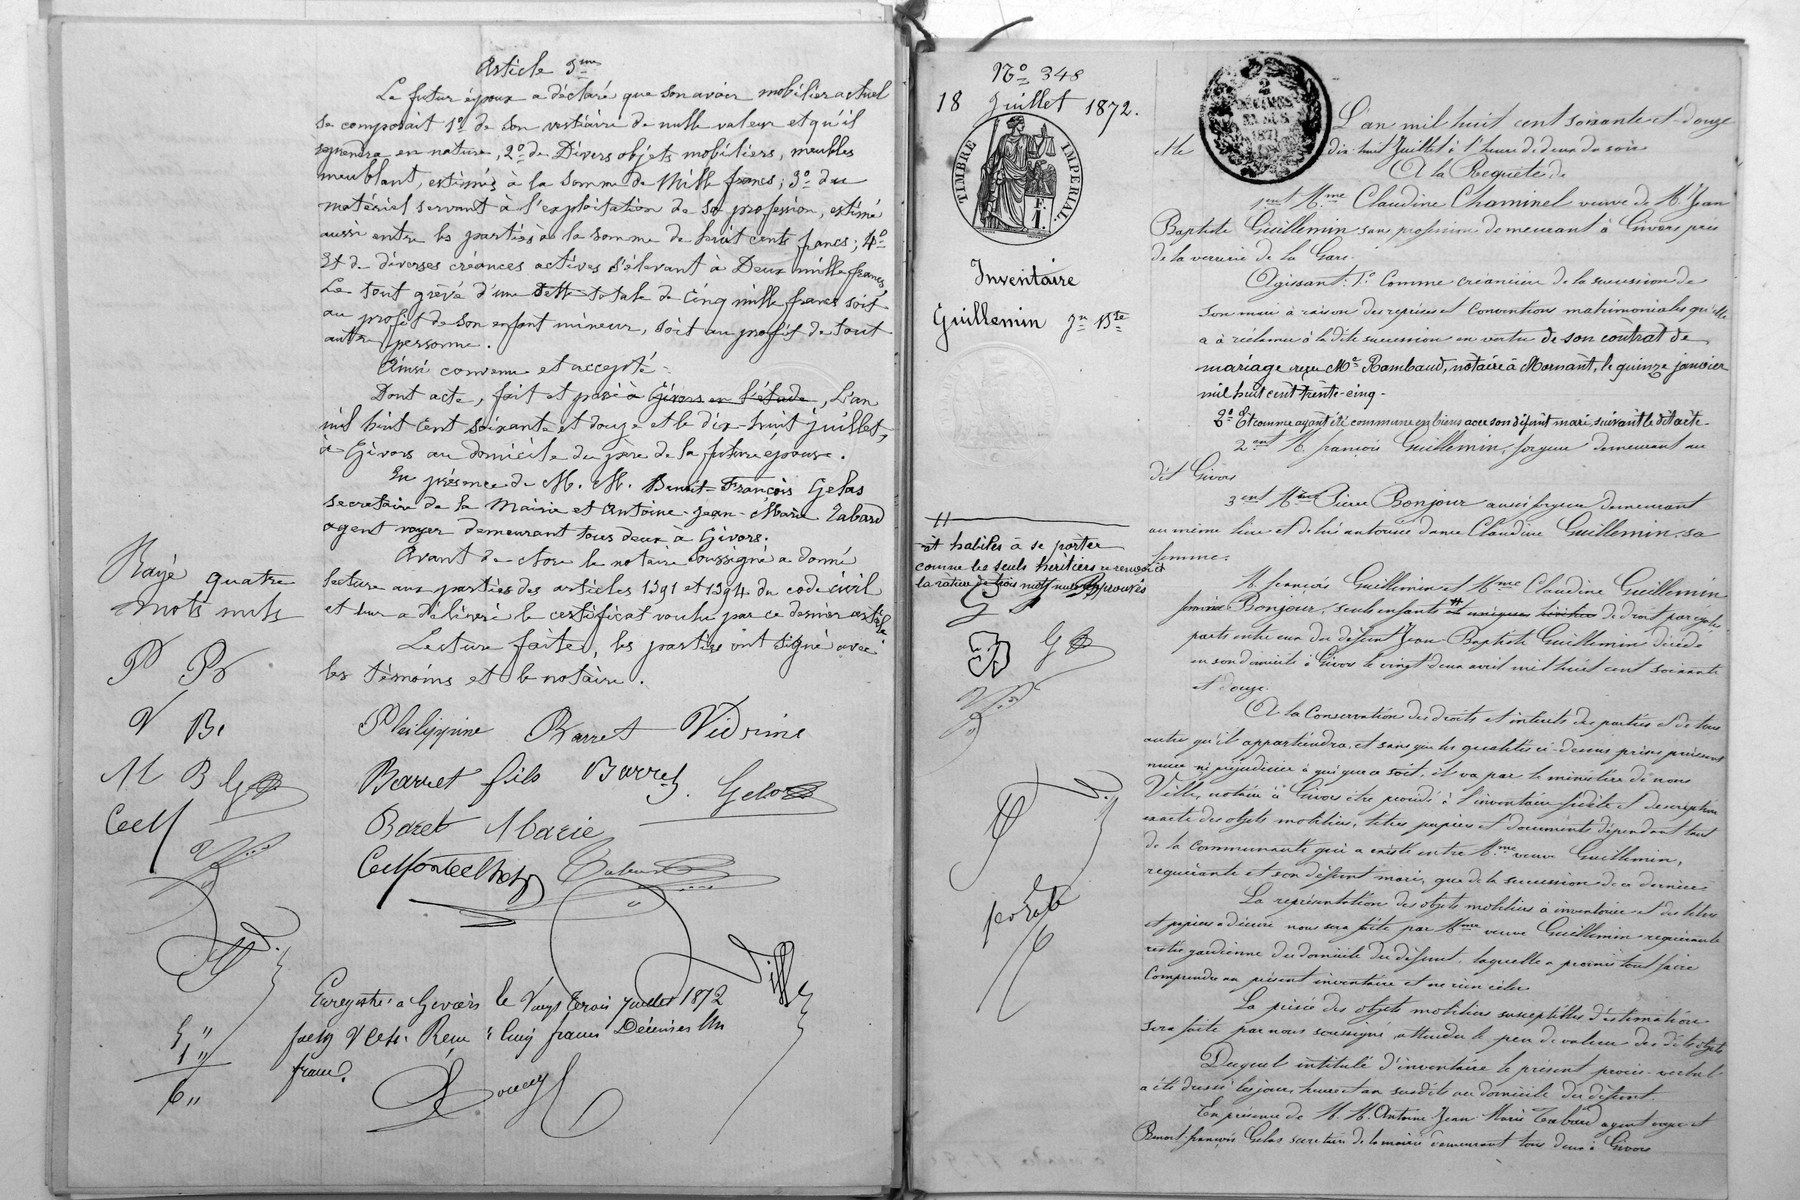 Article 5me
Le futur époux a déclaré que son avoir mobilier actuel
se composait 1º de son vestiaire de nulle valeur et qu'il
reprendra en nature, 2º de Divers objets mobiliers, meubles
meublant, estimés à la somme de Mille francs; 3º du
matériel servant à l'exploitation de sa profession, estimé
aussi entre les parties à la somme de huit cents francs; 4º
Et de diverses créances actives s'élevant à Deux mille francs,
Le tout grevé d'une dette totale de Cinq mille francs soit
au profit de son enfant mineur, soit au profit de tout
autre personne.
Ainsi convenu et accepté.
Dont acte, fait et passé à Givors en l'étude, L'an
mil huit cent soixante et douze et le dix-huit juillet,
à Givors au domicile du père de la future épouse.
En présence de M. M. Benoit-François Gelas
secretaire de la Mairie et Antoine-Jean-Marie Tabard
agent voyer demeurant tous deux à Givors.
Avant de clore le notaire soussigné a donné
lecture aux parties des articles 1391 et 1394 du code civil
et leur a délivré le certificat voulu par ce dernier article.
Lecture faite, les parties ont signé avec
les témoins et le notaire.
Rayé quatre
mots nuls
P Pr
V Br
M B G
Philippine Barret Vidrine
Barret fils Barret Gelas
Baret Marie
Enregistré à Givors le Vingt trois juillet 1872
Reçu : Cinq francs Décimes Un
franc.
5 "
1 "
6 "
Nº 348
18 Juillet 1872.
TIMBRE IMPÉRIAL
1 F.
Inventaire
Guillemin Jn Bte
et habiles à se porter
comme les seuls héritiers ce renvoi et
la rature de trois mots nuls approuvés
2
DÉCIMES
EN SUS
1871
L'an mil huit cent soixante et douze
et le dix-huit Juillet à l'heure de deux du soir
A la Requête de
1ent Mme Claudine Chaminel veuve de M. Jean
Baptiste Guillemin sans profession demeurant à Givors près
de la verrerie de la Gare.
Agissant: 1º Comme créancière de la succession de
son mari à raison des reprises et Conventions matrimoniales qu'elle
a à réclamer à la dite succession en vertu de son contrat de
mariage reçu Me Rambaud, notaire à Mornant, le quinze janvier
mil huit cent trente-cinq.
2º Et comme ayant été commune en biens avec son défunt mari, suivant le dit acte.
2ent M. françois Guillemin, forgeur demeurant au
dit Givors
3ent M. Pierre Bonjour aussi forgeur demeurant
au même lieu et de lui autorisée dame Claudine Guillemin, sa
femme.
M. françois Guillemin et Mme Claudine Guillemin
femme Bonjour, seuls enfants et uniques héritiers de droit par égales
parts entre eux du défunt Jean-Baptiste Guillemin décédé
en son domicile à Givors le vingt deux avril mil huit cent soixante
et douze.
A la Conservation des droits et intérêts des parties et de tous
autre qu'il appartiendra, et sans que les qualités ci-dessus prises puissent
nuire ni préjudicier à qui que ce soit, il va par le ministère de nous
Ville, notaire à Givors être procédé à l'inventaire fidèle et description
exacte des objets mobiliers, titres papiers et documents dépendant tant
de la Communauté qui a existé entre Mme veuve Guillemin,
requérante et son défunt mari, que de la succession de ce dernier.
La représentation des objets mobiliers à inventorier et des titres
et papiers à décrire nous sera faite par Mme veuve Guillemin requérante
restée gardienne du domicile du défunt, laquelle a promis tout faire
comprendre au présent inventaire et ne rien céler.
La prisée des objets mobiliers susceptibles d'estimation
sera faite par nous soussigné attendu le peu de valeur des dits objets
Duquel intitulé d'inventaire le présent procès-verbal
a été dressé les jour, heure et an susdits au domicile du défunt.
En présence de M. M. Antoine Jean Marie Tabard agent voyer et
Benoit-françois Gelas secrétaire de la mairie demeurant tous deux à Givors